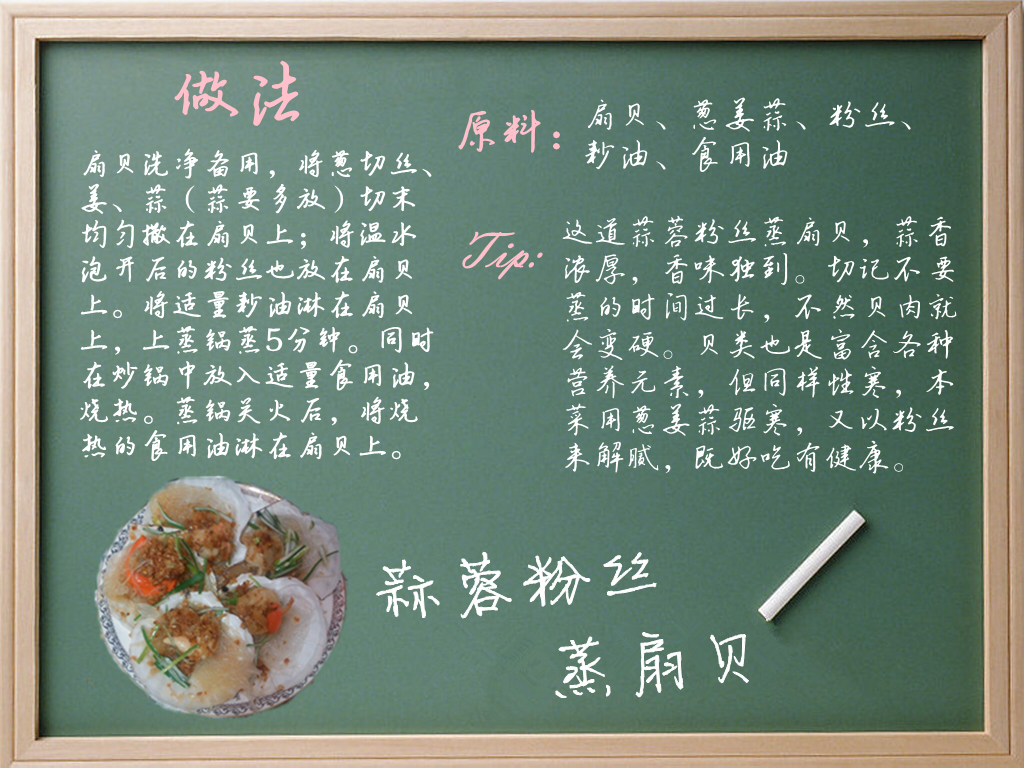 做法
扇贝洗净备用，将葱切丝、
姜、蒜（蒜要多放）切末
均匀撒在扇贝上；将温水
泡开后的粉丝也放在扇贝
上。将适量豉油淋在扇贝
上，上蒸锅蒸5分钟。同时
在炒锅中放入适量食用油，
烧热。蒸锅关火后，将烧
热的食用油淋在扇贝上。
原料：
扇贝、葱姜蒜、粉丝、
豉油、食用油
Tip:
这道蒜蓉粉丝蒸扇贝，蒜香
浓厚，香味独到。切记不要
蒸的时间过长，不然贝肉就
会变硬。贝类也是富含各种
营养元素，但同样性寒，本
菜用葱姜蒜驱寒，又以粉丝
来解腻，既好吃有健康。
蒜蓉粉丝
蒸扇贝